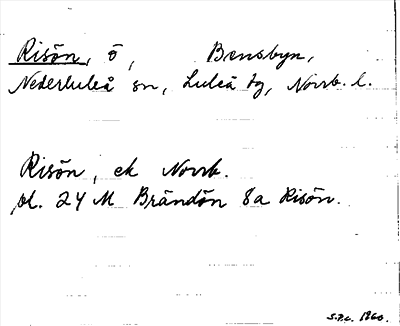 Risön, ö, Bensbyn,
Nederluleå sn, Luleå tg, Norrb. l.
Risön, ek Norrb.
bl. 24 M Brändön 8a Risön.
1960.